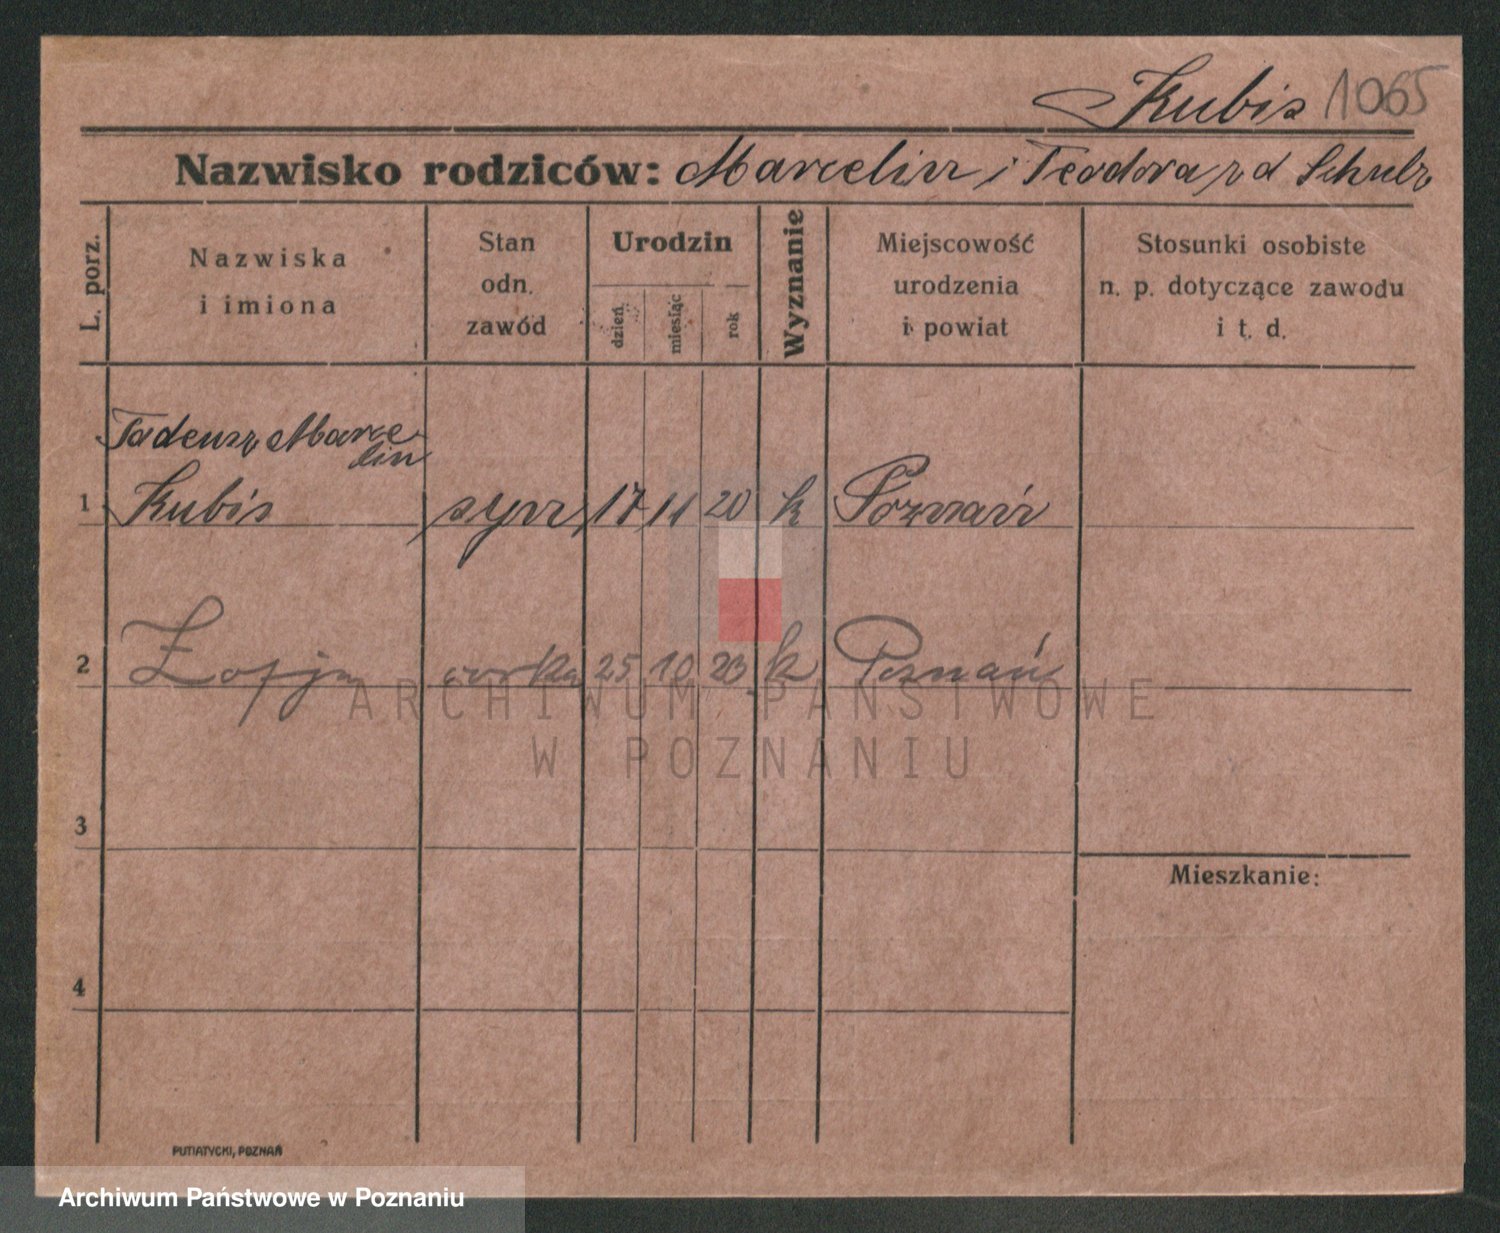 Kubis 1065
Nazwisko rodziców: Marcelin i Teodora z d Schulz
L. porz.
Nazwiska
i imiona
Stan
odn.
zawód
Urodzin
dzień
miesiąc
rok
Wyznanie
Miejscowość
urodzenia
i powiat
Stosunki osobiste
n. p. dotyczące zawodu
i t. d.
Tadeusz Marce
lin
1 Kubis syn 17 11 20 k Poznań
2 Zofja córka 25 10 23 k Poznań
ARCHIWUM PAŃSTWOWE
W POZNANIU
3
Mieszkanie:
4
PUTIATYCKI, POZNAŃ
Archiwum Państwowe w Poznaniu